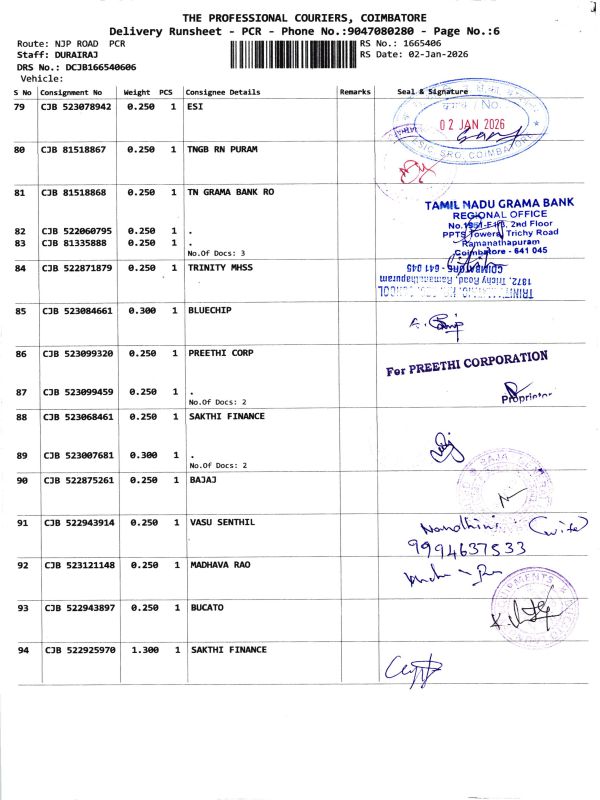 THE PROFESSIONAL COURIERS, COIMBATORE
Delivery Runsheet - PCR - Phone No.:9047080280 - Page No.:6
Route: NJP ROAD PCR
RS No.: 1665406
Staff: DURAIRAJ
RS Date: 02-Jan-2026
DRS No.: DCJB166540606
Vehicle:
S No Consignment No Weight PCS Consignee Details Remarks Seal & Signature
79 CJB 523078942 0.250 1 ESI
No.
02 JAN 2026
ESIC, SRO, COIMBATORE
80 CJB 81518867 0.250 1 TNGB RN PURAM
81 CJB 81518868 0.250 1 TN GRAMA BANK RO
TAMIL NADU GRAMA BANK
REGIONAL OFFICE
2nd Floor
PPTS Towers, Trichy Road
Ramanathapuram
Coimbatore - 641 045
82 CJB 522060795 0.250 1 .
83 CJB 81335888 0.250 1 .
No.Of Docs: 3
84 CJB 522871879 0.250 1 TRINITY MHSS
COIMBATORE - 641 045
1872, Trichy Road, Ramanathapuram
85 CJB 523084661 0.300 1 BLUECHIP
86 CJB 523099320 0.250 1 PREETHI CORP
For PREETHI CORPORATION
Proprietor
87 CJB 523099459 0.250 1 .
No.Of Docs: 2
88 CJB 523068461 0.250 1 SAKTHI FINANCE
89 CJB 523007681 0.300 1 .
No.Of Docs: 2
90 CJB 522875261 0.250 1 BAJAJ
91 CJB 522943914 0.250 1 VASU SENTHIL
Nandhini (wife)
9994637533
92 CJB 523121148 0.250 1 MADHAVA RAO
93 CJB 522943897 0.250 1 BUCATO
94 CJB 522925970 1.300 1 SAKTHI FINANCE